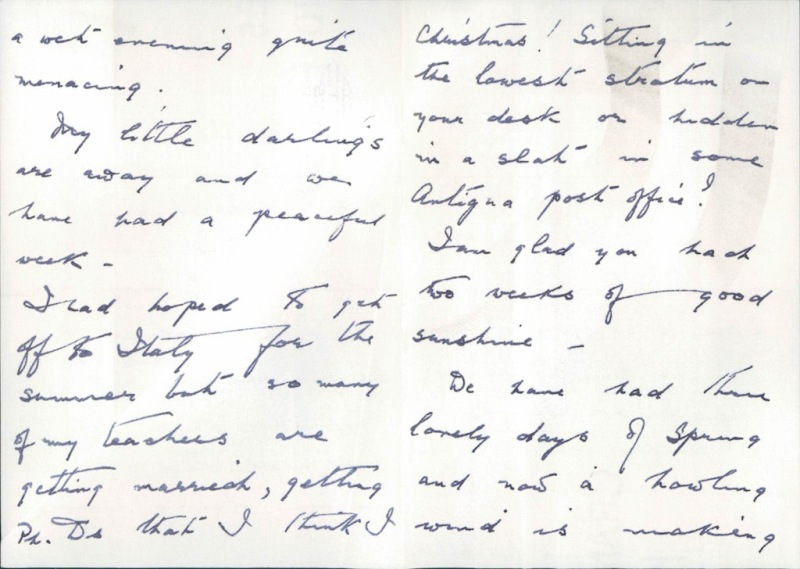 a wet evening quite
menacing.
My little darlings
are away and we
have had a peaceful
week -
I had hoped to get
off to Italy for the
summer but so many
of my teachers are
getting married, getting
Ph. Ds that I think I
Christmas! Sitting in
the lowest stratum on
your desk or hidden
in a slot in some
Antigua post office?
I am glad you had
two weeks of good
sunshine -
We have had three
lovely days of Spring
and now a howling
wind is making